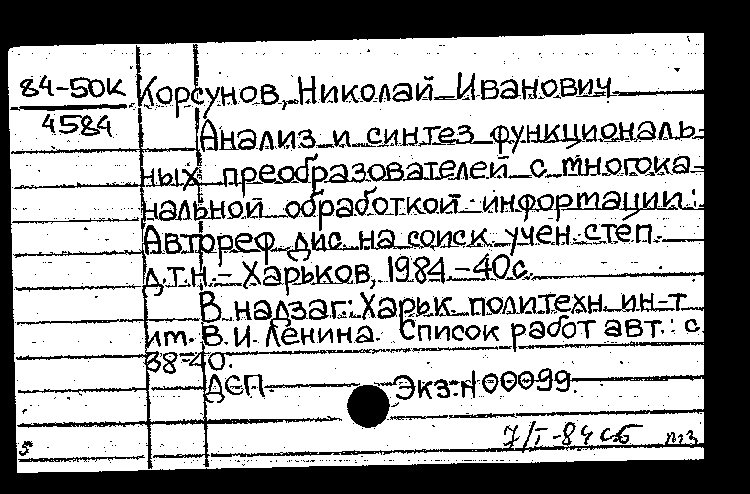 84-50К Корсунов, Николай Иванович
4584
Анализ и синтез функциональ-
ных преобразователей с многока-
нальной обработкой информации:
Автореф дис. на соиск учен. степ.
д.т.н.- Харьков, 1984.-40с.
В надзаг: Харьк. политехн. ин-т
им. В.И. Ленина. Список работ авт.: с
38-40.
ДСП Экз.N 00099.
7/I-84 сб
5